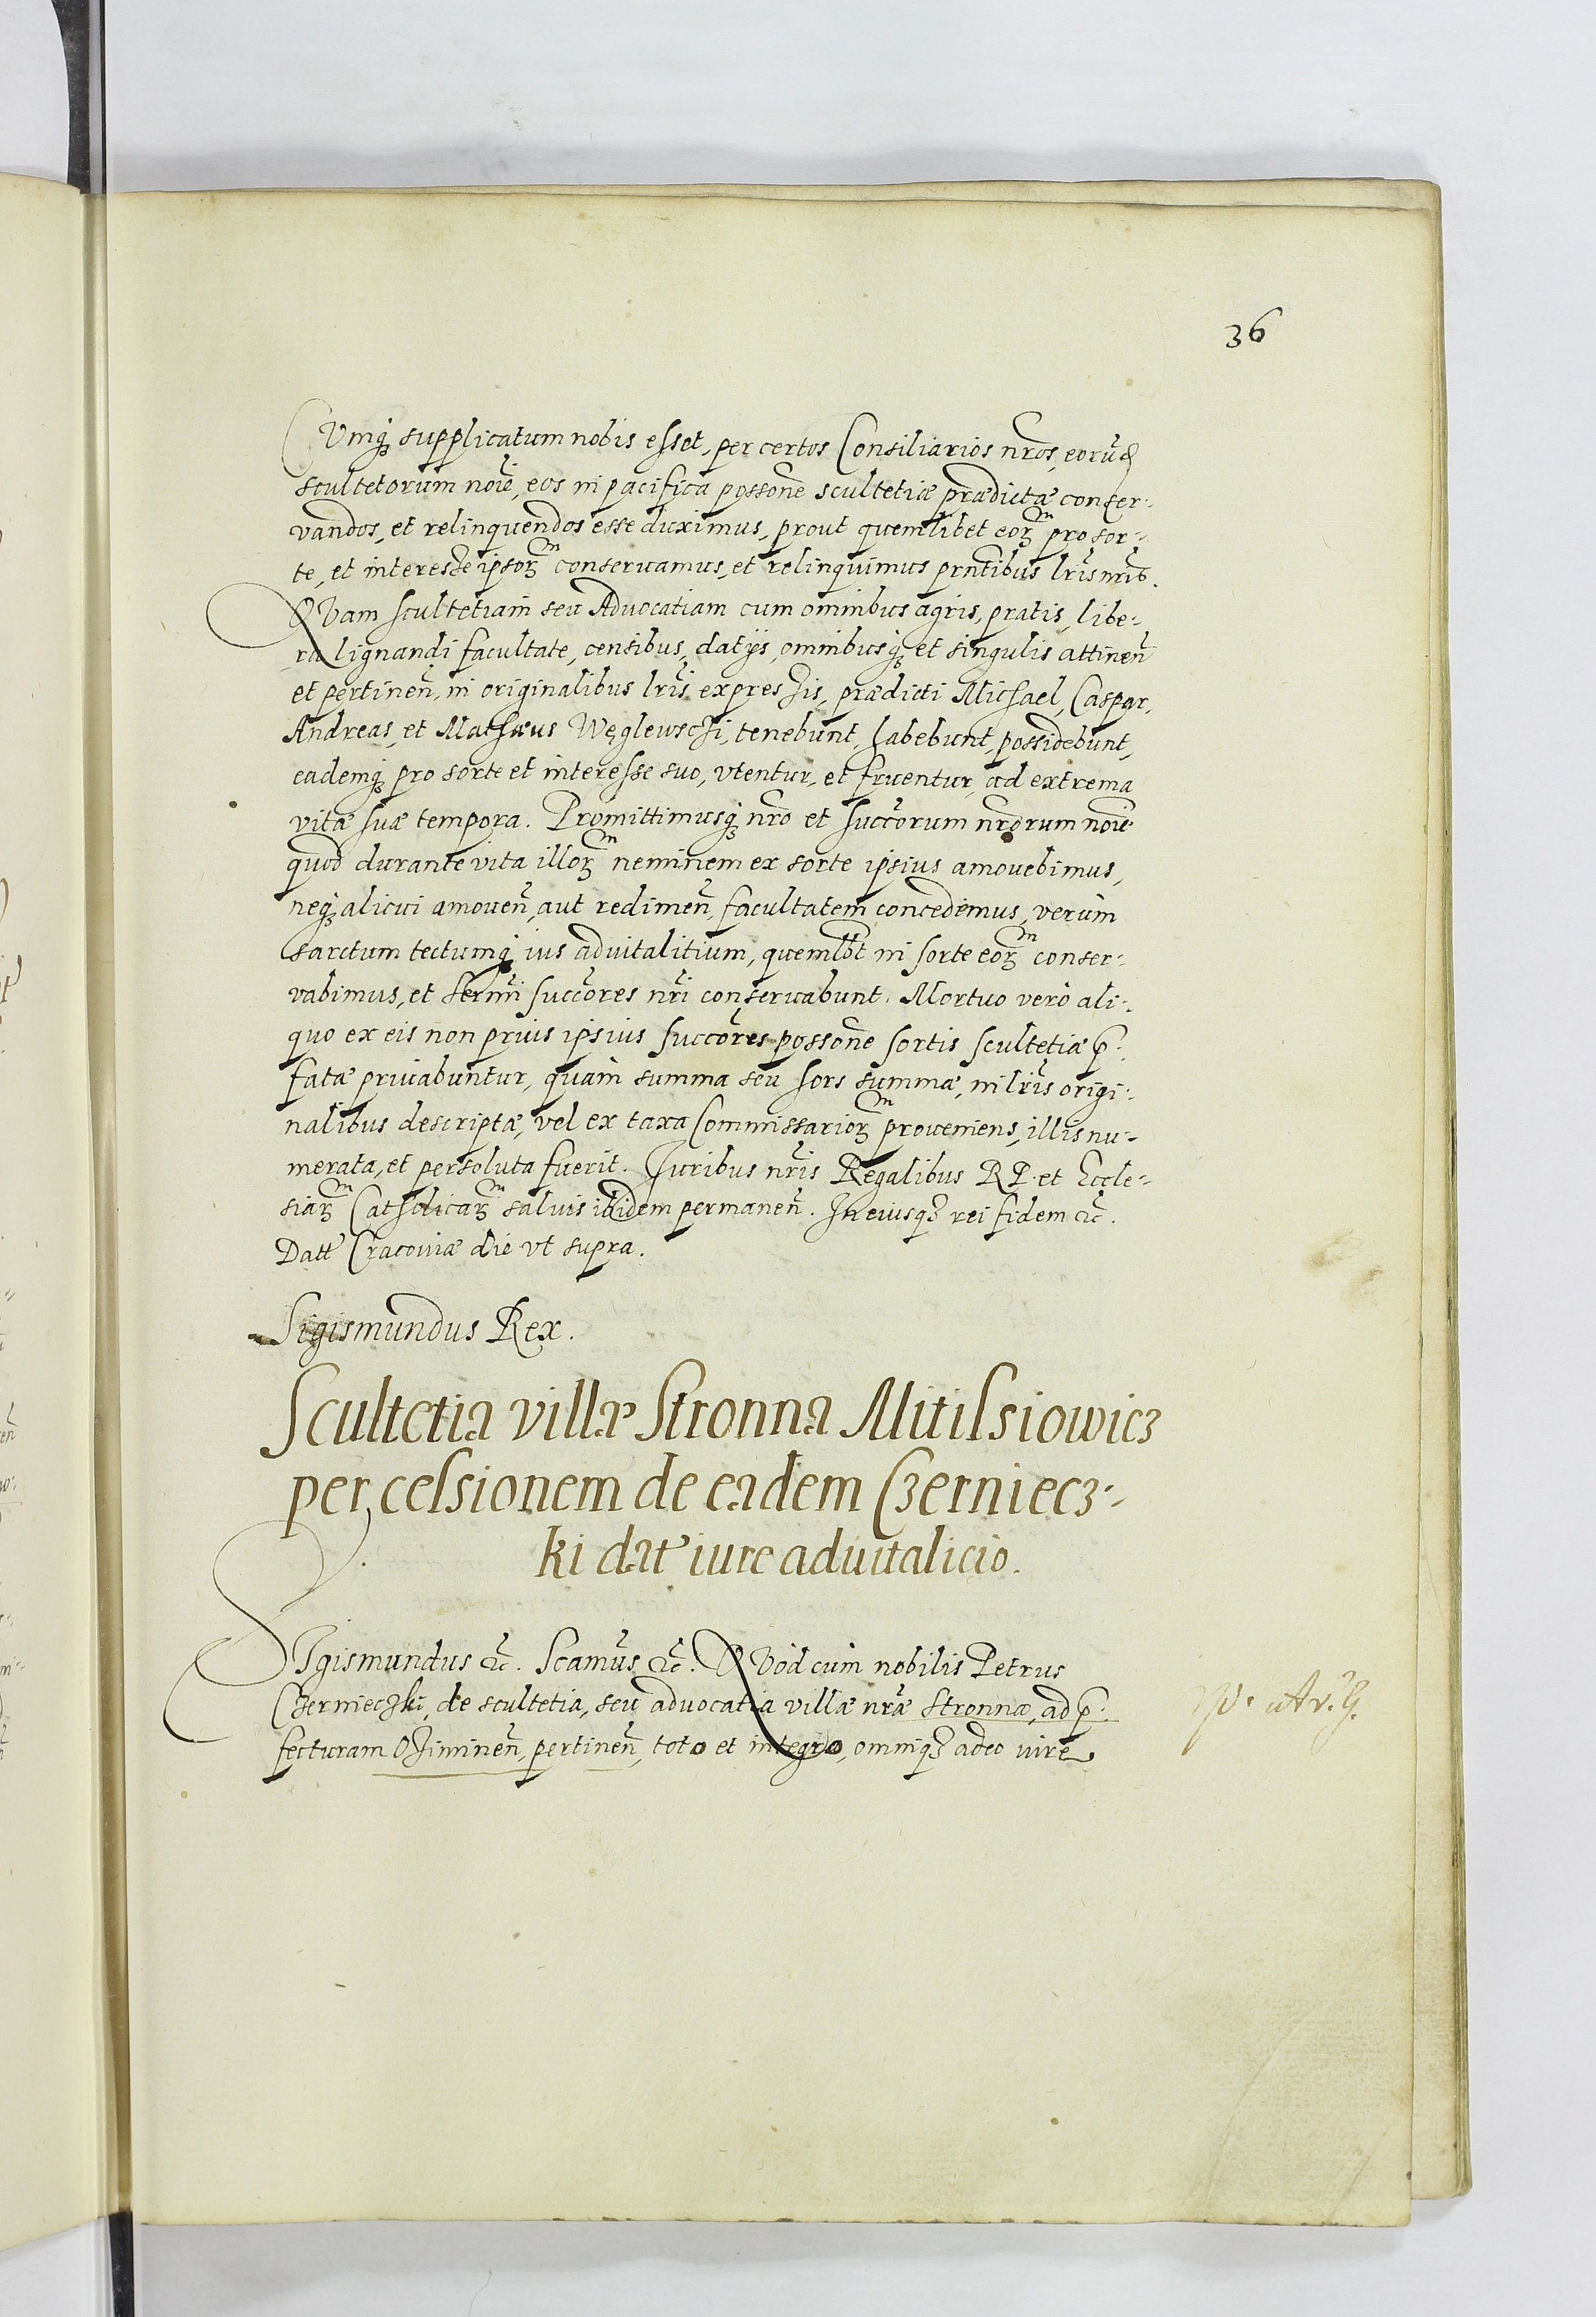 36
CVmq₃ supplicatum nobis esset, per certos Consiliarios nr̃os, eorũd
scultetorum noĩe, eos in pacifica possõne scultetiæ prædictæ conser-
vandos, et relinquendos esse duximus, prout quemlibet eorꝫm pro sor-
te, et interesse ipsorꝫm conseruamus, et relinquimus prñtibus lr̃is nr̃is.
QVam scultetiam seu Aduocatiam cum omnibus agris, pratis, libe-
ra lignandi facultate, censibus, datijs, omnibusq₃ et singulis attineñ
et pertineñ, in originalibus lr̃is expressis, prædicti Michael, Caspar,
Andreas, et Mathæus Węglewschi, tenebunt, habebunt, possidebunt,
eademq₃ pro sorte et interesse suo, vtentur, et fruentur, ad extrema
vitæ suæ tempora. Promittimusq₃ nr̃o et succõrum nr̃orum noĩe
quod durante vita illorꝫm neminem ex sorte ipsius amouebimus,
neq₃ alicui amoueñ, aut redimeñ, facultatem concedemus, verùm
sarctum tectumq₃ ius aduitalitium, quemlbt in sorte eorꝫm conser-
vabimus, et sermi succõres nr̃i conseruabunt. Mortuo verò ali-
quo ex eis non prius ipsius succõres possõne sortis scultetiæ p̃-
fatæ priuabuntur, quàm summa seu sors summæ, in lr̃is origi-
nalibus descriptæ, vel ex taxa Commissariorꝫm proueniens, illis nu-
merata, et persoluta fuerit. Iuribus nr̃is Regalibus R P. et Eccle-
siarꝫm Catholicarꝫm saluis ibidem permaneñ. In eiusq₃ rei fidem &c̃.
Datt Cracouiæ die vt supra.
Sigismundus Rex.
Scultetia villæ Stronna Mitilsiowicz
per cessionem de eadem Czerniecz-
ki dat iure aduitalicio.
SIgismundus &c̃. Scamũs &c̃. QVòd cùm nobilis Petrus
Czernieczki, de scultetia, seu aduocatia villæ nr̃æ Stronna, ad p̃-
fecturam Oszimineñ, pertineñ, toto et integro, omniq₃ adeo iure